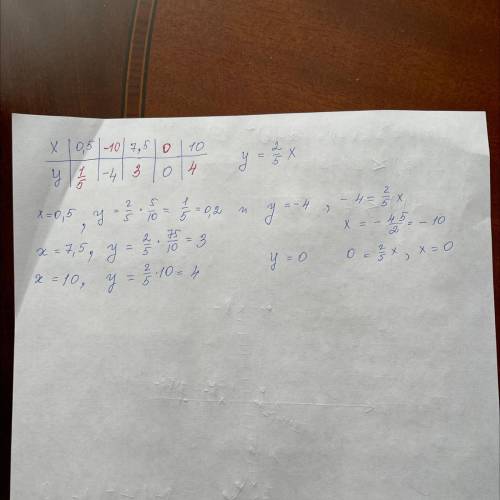 x | 0,5 | -10 | 7,5 | 0 | 10
y | 1/5 | -4 | 3 | 0 | 4
y = 2/5 x
x=0,5, y = 2/5 · 5/10 = 1/5 = 0,2 и y = -4, -4 = 2/5 x,
x = - 4·5/2 = -10
x = 7,5, y = 2/5 · 75/10 = 3
y = 0 0 = 2/5 x, x = 0
x = 10, y = 2/5 · 10 = 4